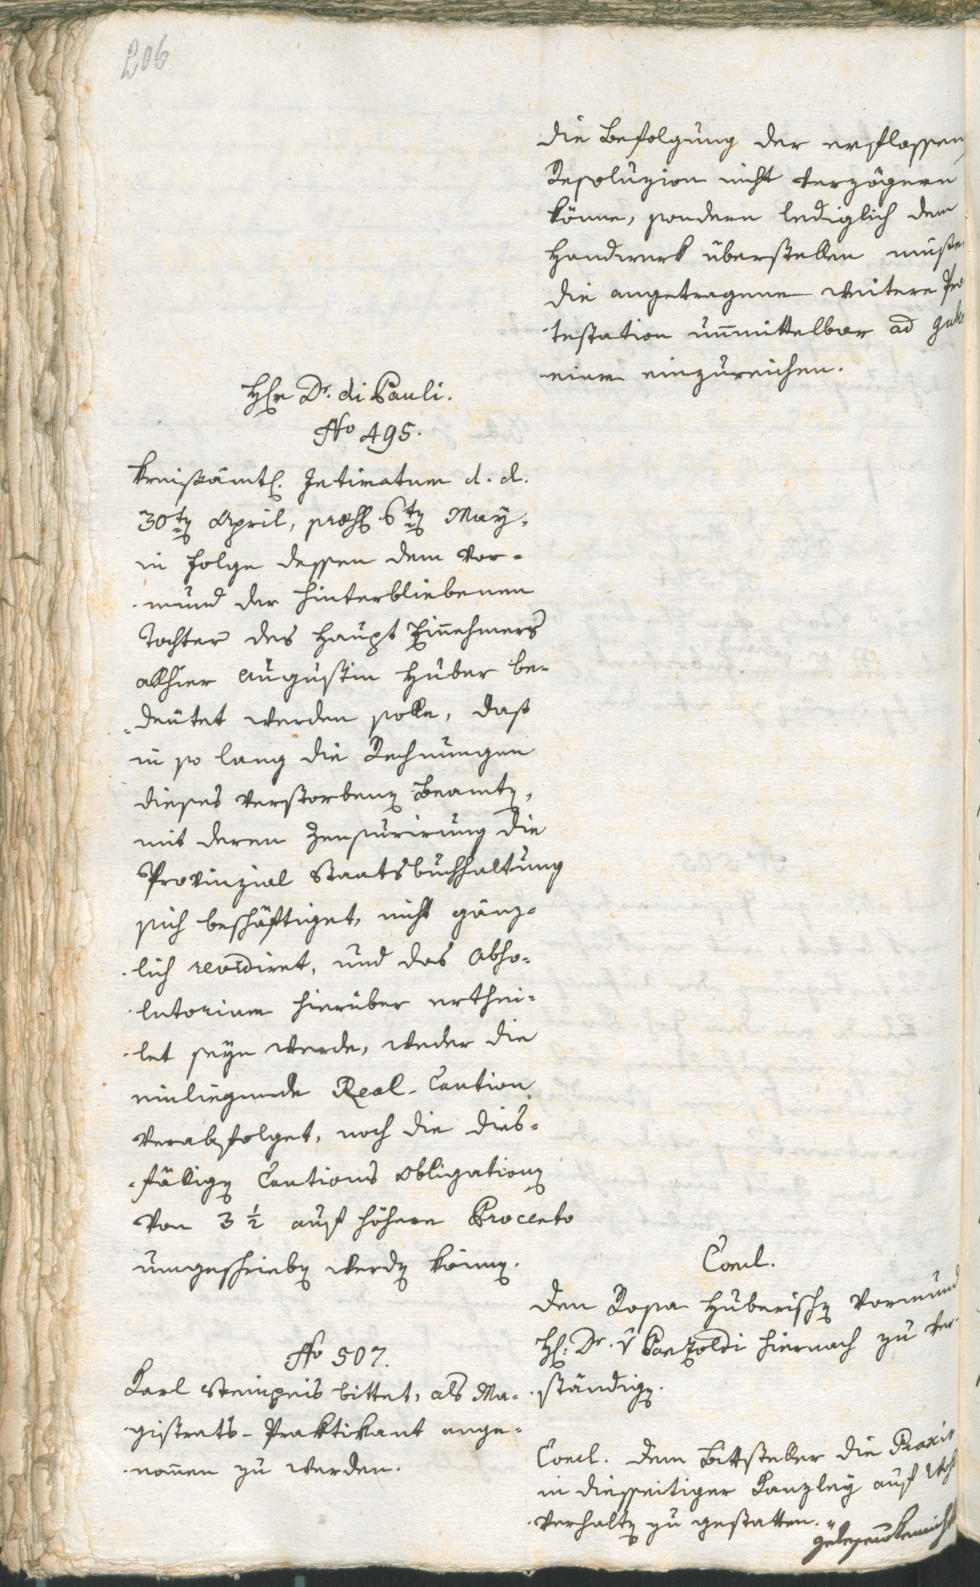 206
die Befolgung der erflossen
Resoluzion nicht verzögern
könne, sondern lediglich dem
Handwerk überstellen müße
die angetragene weitere Pro
testation unmittelbar ad Guber
nium einzureichen.
H̄r Dr. di Pauli.
No 495.
Kreisämtl. Intimatum d. d.
30ten April, præs. 6ten May,
in Folge dessen dem Vor-
mund der hinterbliebenen
Tochter des Haupt Einnehmers
allhier Augustin Huber be-
deutet werden solle, daß
in so lang die Rechnungen
dieses verstorbenen Beamten,
mit deren Zensurirung die
Provinzial Staatsbuchhaltung
sich beschäftiget, nicht gänz-
lich revidiret, und das Abso-
lutorium hierüber erthei-
let seyn werde, weder die
einliegende Real-Caution
verabfolget, noch die dies-
fälligen Cautions Obligationen
von 3 1/2 auf höhere Procento
umgeschrieben werden können.
Concl.
Den Rosa Huberischen Vormund
H. Dr. v Panzoldi hiernach zu ver-
ständigen.
No 507.
Karl Steinpeis bittet, als Ma-
gistrats-Praktikant ange-
nommen zu werden.
Concl. Dem Bittsteller die Praxin
in diesseitiger Kanzley auf Wohl
verhalten zu gestatten.